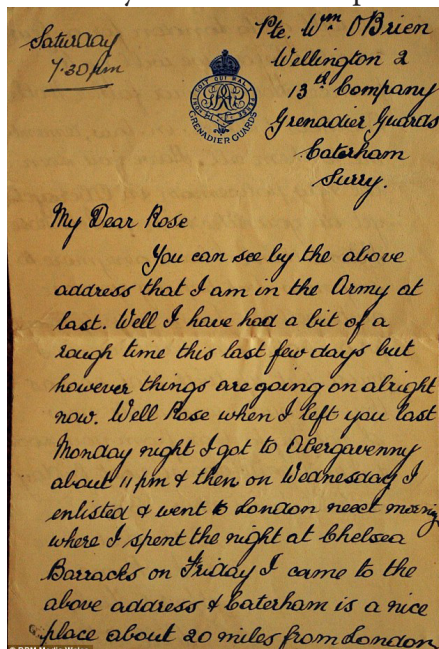 Saturday
7.30 pm
Pte. Wm O'Brien
Wellington 2
13th Company
Grenadier Guards
Caterham
Surry.
GRENADIER GUARDS
My Dear Rose
You can see by the above
address that I am in the Army at
last. Well I have had a bit of a
rough time this last few days but
however things are going on alright
now. Well Rose when I left you last
Monday night I got to Abergavenny
about 11 pm & then on Wednesday I
enlisted & went to London next morng
where I spent the night at Chelsea
Barracks on Friday I came to the
above address & Caterham is a nice
place about 20 miles from London